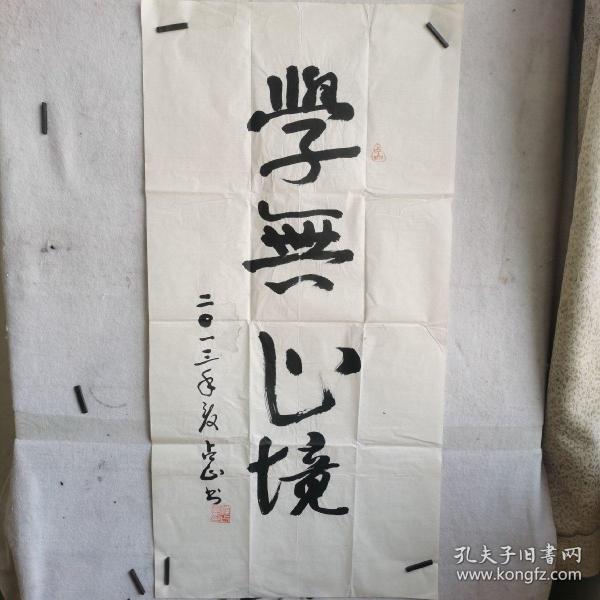 學無止境
二〇一三年
占山书
孔夫子旧书网
www.kongfz.com